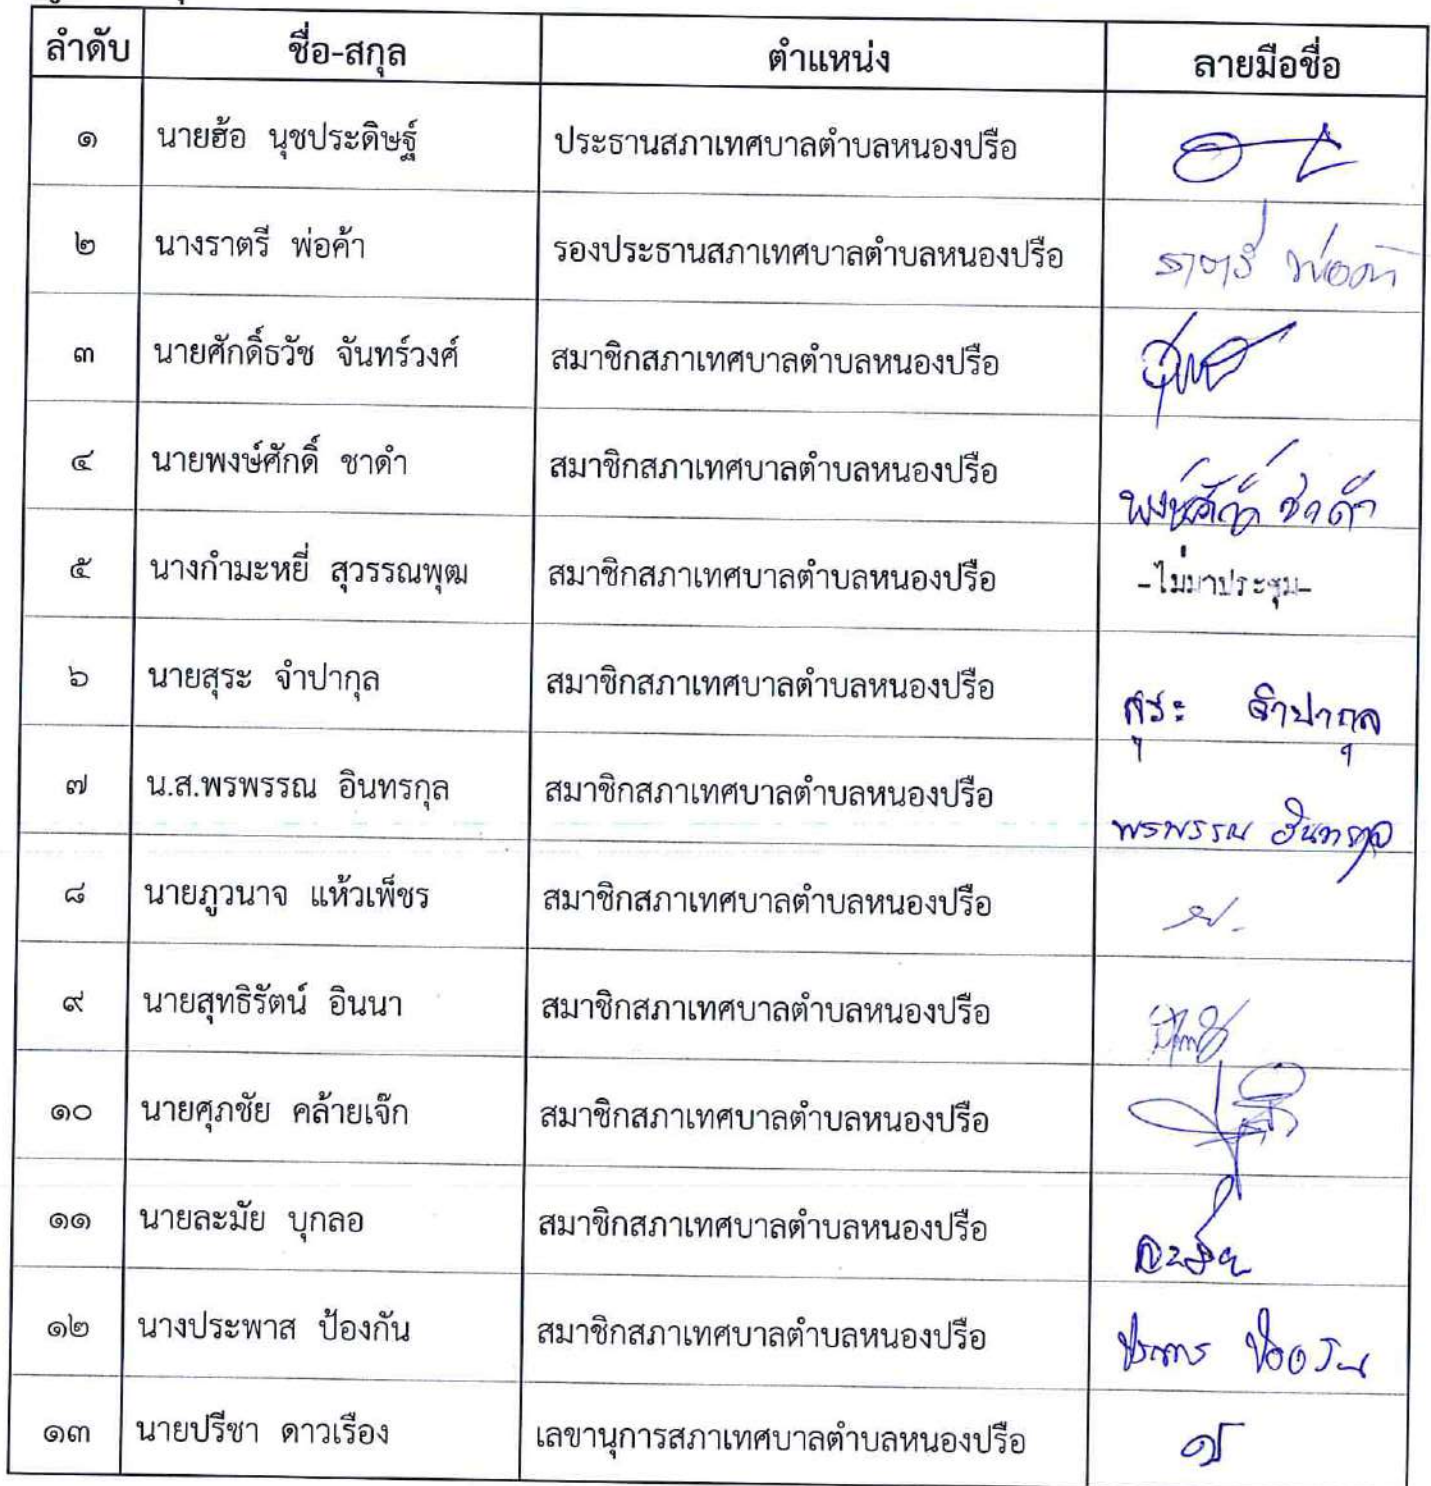 ลำดับ ชื่อ-สกุล ตำแหน่ง ลายมือชื่อ
๑ นายฮ้อ นุชประดิษฐ์ ประธานสภาเทศบาลตำบลหนองปรือ
๒ นางราตรี พ่อค้า รองประธานสภาเทศบาลตำบลหนองปรือ ราตรี พ่อค้า
๓ นายศักดิ์ธวัช จันทร์วงศ์ สมาชิกสภาเทศบาลตำบลหนองปรือ
๔ นายพงษ์ศักดิ์ ชาดำ สมาชิกสภาเทศบาลตำบลหนองปรือ พงษ์ศักดิ์ ชาดำ
๕ นางกำมะหยี่ สุวรรณพุฒ สมาชิกสภาเทศบาลตำบลหนองปรือ -ไม่มาประชุม-
๖ นายสุระ จำปากุล สมาชิกสภาเทศบาลตำบลหนองปรือ สุระ จำปากุล
๗ น.ส.พรพรรณ อินทรกุล สมาชิกสภาเทศบาลตำบลหนองปรือ พรพรรณ อินทรกุล
๘ นายภูวนาจ แห้วเพ็ชร สมาชิกสภาเทศบาลตำบลหนองปรือ
๙ นายสุทธิรัตน์ อินนา สมาชิกสภาเทศบาลตำบลหนองปรือ
๑๐ นายศุภชัย คล้ายเจ๊ก สมาชิกสภาเทศบาลตำบลหนองปรือ
๑๑ นายละมัย บุกลอ สมาชิกสภาเทศบาลตำบลหนองปรือ ละมัย
๑๒ นางประพาส ป้องกัน สมาชิกสภาเทศบาลตำบลหนองปรือ ประพาส ป้องกัน
๑๓ นายปรีชา ดาวเรือง เลขานุการสภาเทศบาลตำบลหนองปรือ